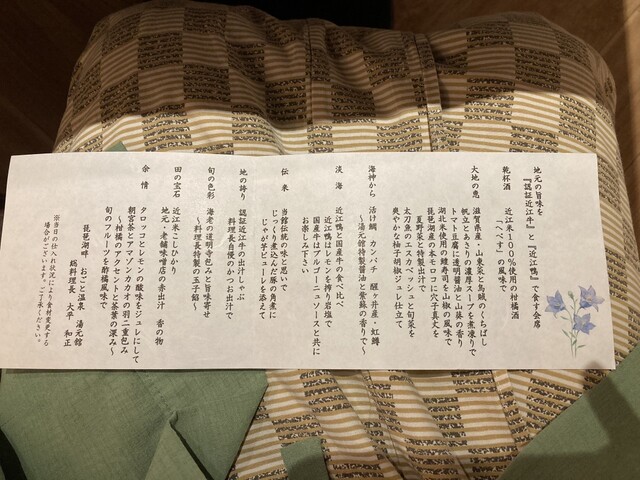 地元の旨味を
『認証近江牛』と『近江鴨』で食す会席
乾杯酒　近江米１００％使用の柑橘酒
「へべす」の風味で
大地の恵　滋賀県産・山東菜と烏賊のくちばし
帆立とあさりの濃厚スープを煮凍りで
トマト豆腐に透明醤油と山葵の香り
湖北米使用の鯉寿司を山椒の風味で
琵琶湖産の本モロコに穴子真丈を
夏野菜と特製出汁で
太刀魚のエスカベッシュと旬菜を
爽やかな柚子胡椒ジュレ仕立て
海神から　活け鯛　カンパチ　醒ヶ井産・虹鱒
～湯元館特製醤油と紫蘇の香りで～
淡海　近江鴨と国産牛の食べ比べ
近江鴨はレモンを搾り岩塩で
国産牛はブルゴーニュソースと共に
お楽しみ下さい
伝来　当館伝統の味と思いで
じっくり煮込んだ豚の角煮に
じゃが芋ピューレを添えて
地の誇り　認証近江牛の出汁しゃぶ
料理長自慢のかつお出汁で
旬の色彩　海老の道明寺包みと旨味寄せ
～料理長特製の玉子餡～
田の宝石　近江米こしひかり
地元・老舗味噌店の赤出汁　香の物
余情　タロッコとレモンの酸味をジュレにして
朝宮茶とアマゾンカカオの羽二重包み
～柑橘のアクセントと茶葉の深み～
旬のフルーツを酢橘風味で
琵琶湖畔　おごと温泉　湯元館
総料理長　大平　和正
※当日の仕入れ状況により食材変更する
場合がございます。ご了承ください。